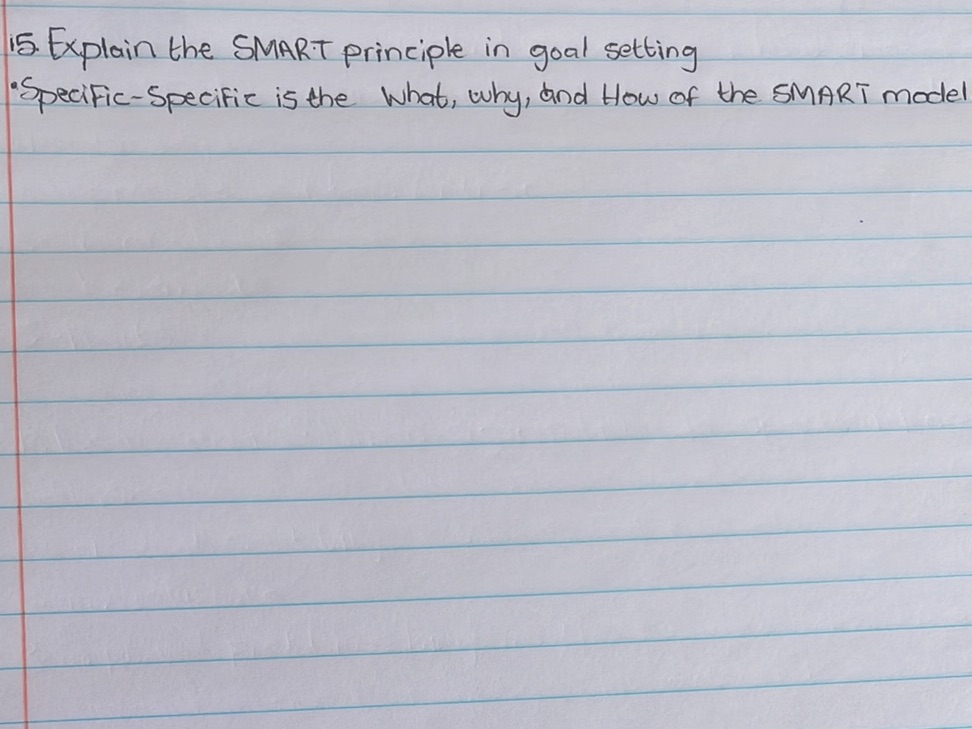 15. Explain the SMART principle in goal setting
•Specific-Specific is the What, why, and How of the SMART model